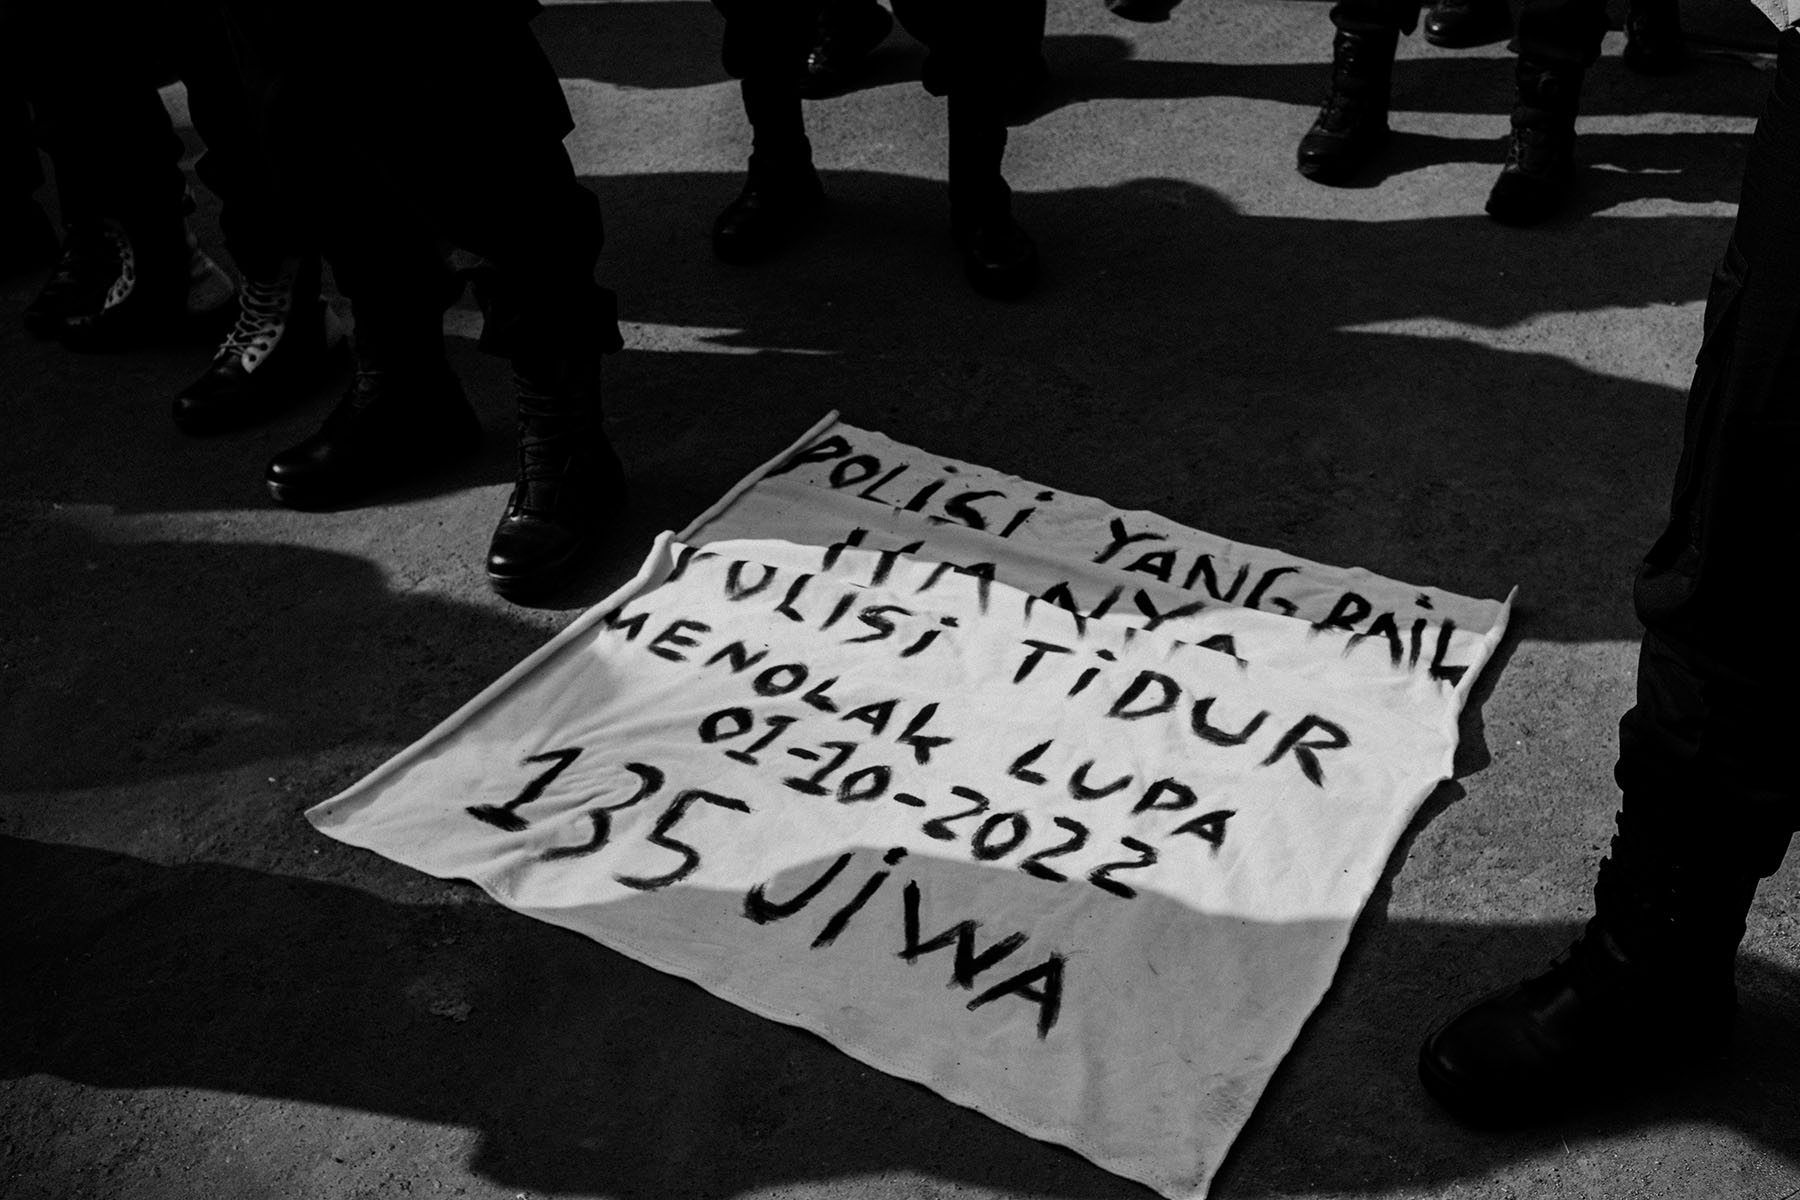 POLISI YANG BAIK
POLISI TIDUR
MENOLAK LUPA
01-10-2022
135 JIWA